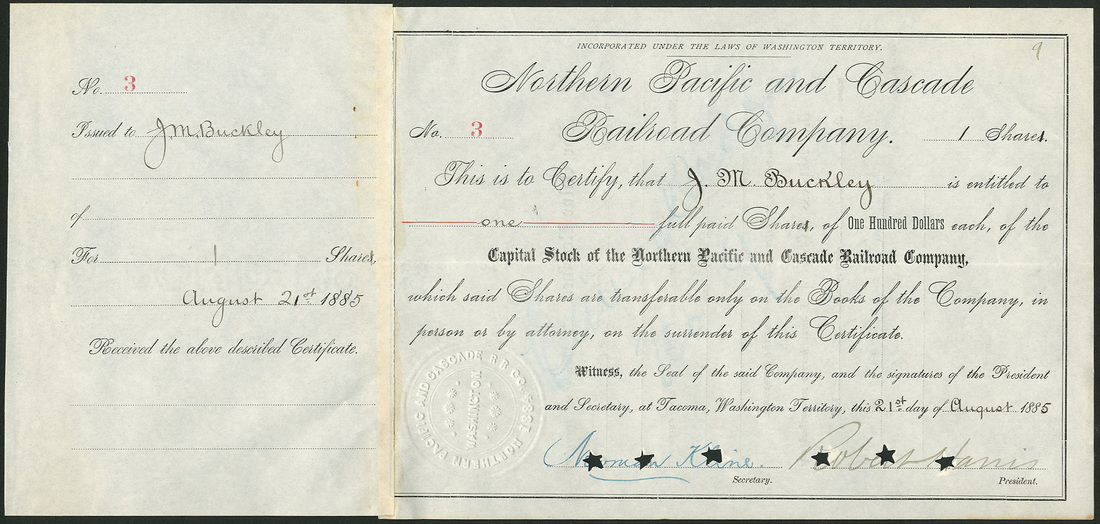 No. 3
Issued to J M Buckley
of
For 1 Shares,
August 21st 1885
Received the above described Certificate.
9
INCORPORATED UNDER THE LAWS OF WASHINGTON TERRITORY.
Northern Pacific and Cascade
No. 3 Railroad Company. 1 Shares.
This is to Certify, that J. M. Buckley is entitled to
one full paid Shares, of One Hundred Dollars each, of the
Capital Stock of the Northern Pacific and Cascade Railroad Company,
which said Shares are transferable only on the Books of the Company, in
person or by attorney, on the surrender of this Certificate.
Witness, the Seal of the said Company, and the signatures of the President
and Secretary, at Tacoma, Washington Territory, this 21st day of August 1885
NORTHERN PACIFIC AND CASCADE R R CO. 1884
WASHINGTON
Norman Kline. Robert Harris
Secretary. President.